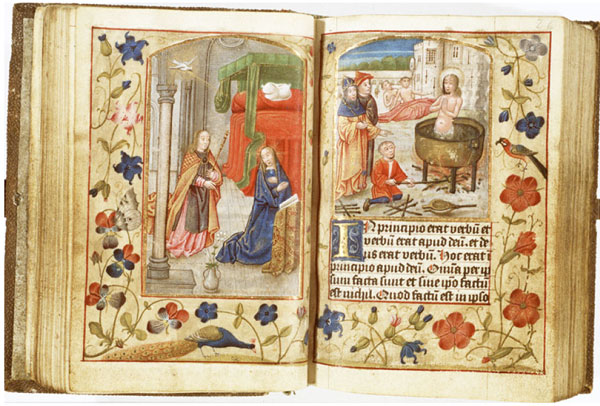 IN principio erat verbū et
verbū erat apud deū. et de
us erat verbū. Hoc erat i
principio apud deū. Om̄ia per ip
sum facta sunt et sine ipo factū
est nichil. Quod factū est in ipso